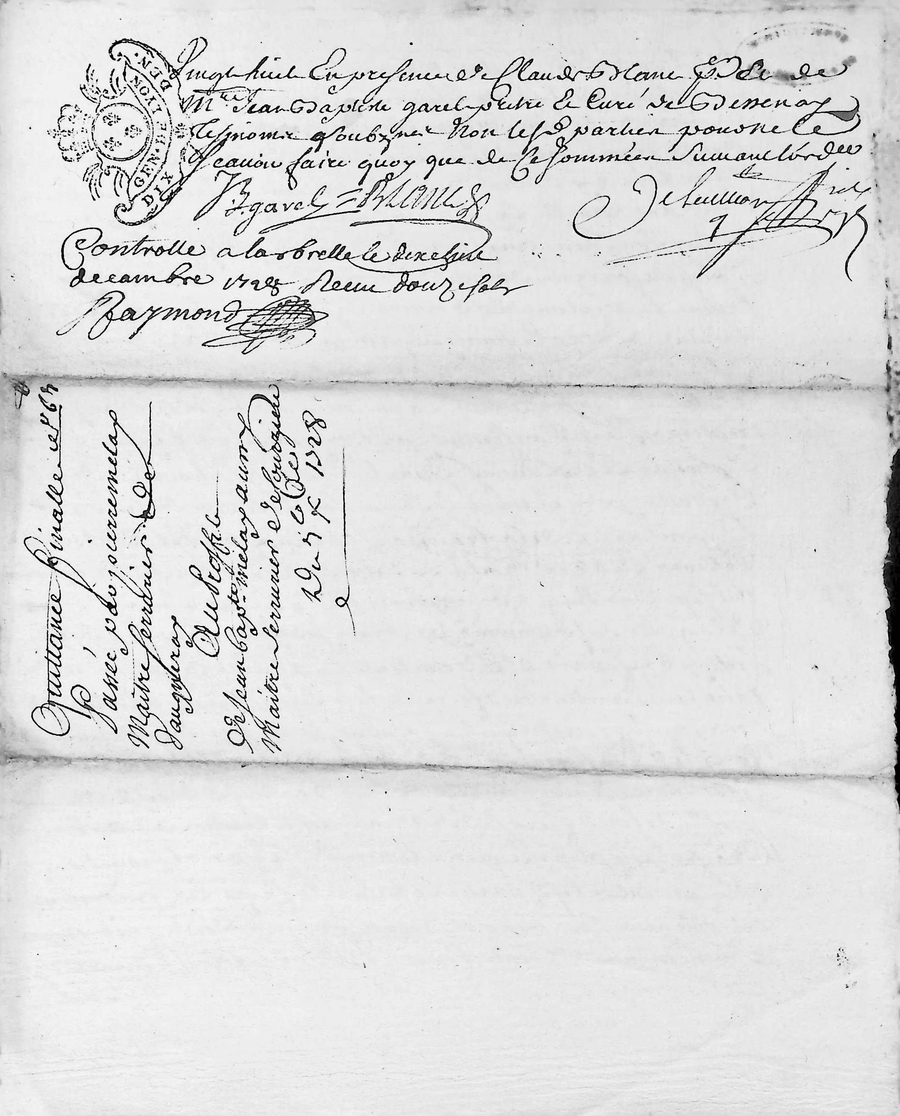 GEN. DE LYON
DIX DEN.
vingt huit En presence de Claude Blanc de
Mre Jean Baptiste garel pretre Et Curé de
Tesmoins soubznez Non lesd parties pour ne le
Scavoir faire quoy que de ce sommées Suivant lordce
JB garel Blanc
Controlle a la brelle le dixe
decambre 1728 Receu douze sols
Raymond
Quittance finalle
Passé par pierre melay
Maitre Serrurier de
Au Proffit
de Jean bapte melay aussy
Maitre Serrurier de
Du 5 Xbre 1728